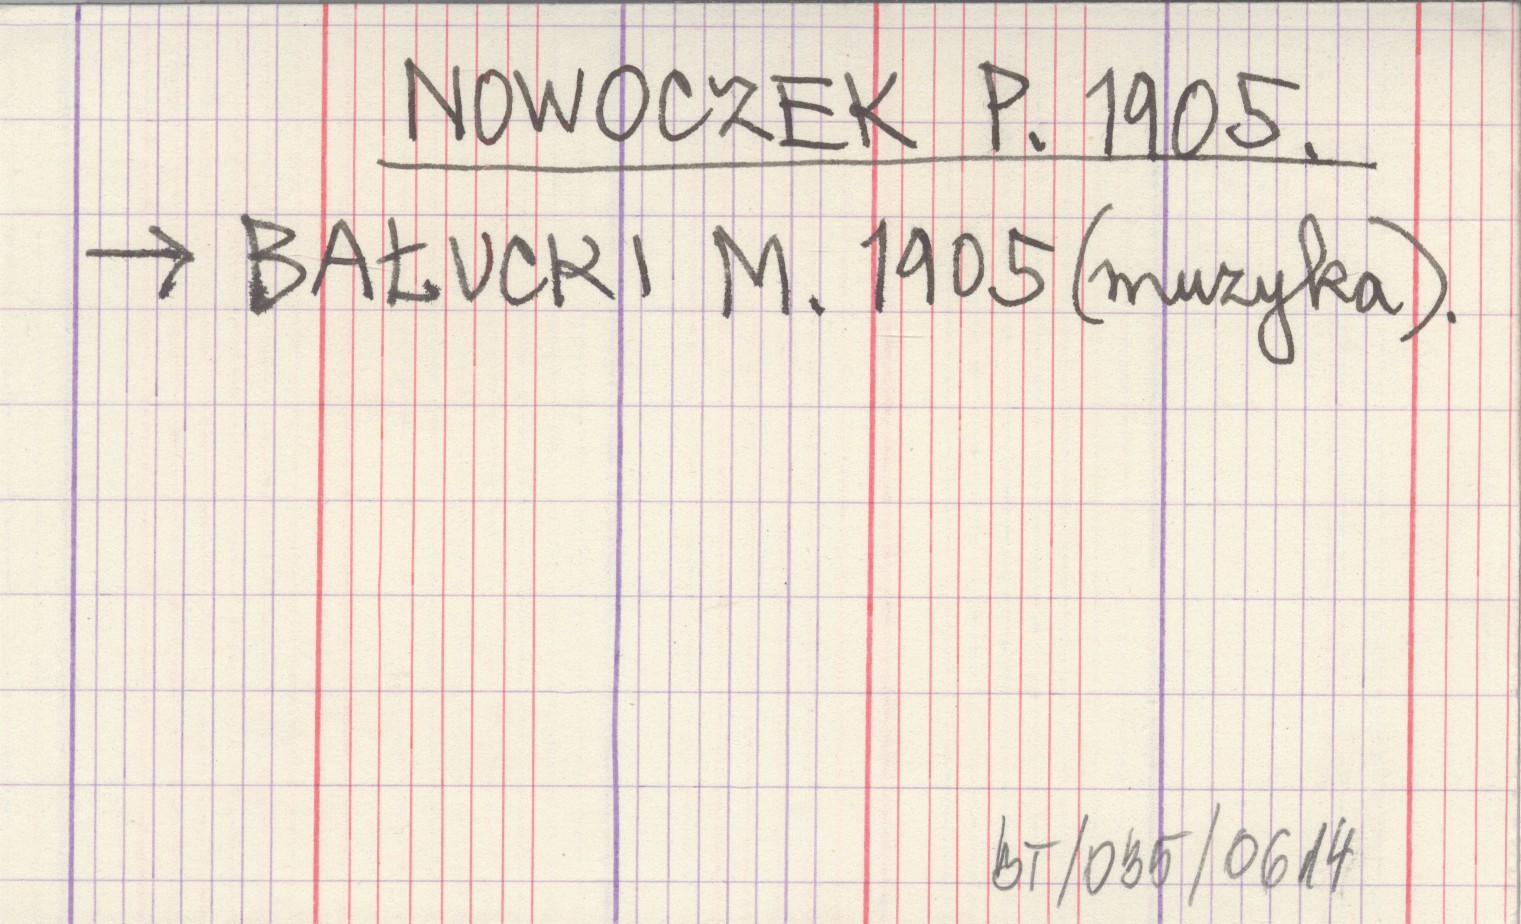 NOWOCZEK P. 1905.
→ BAŁUCKI M. 1905 (muzyka).
BT/035/0614